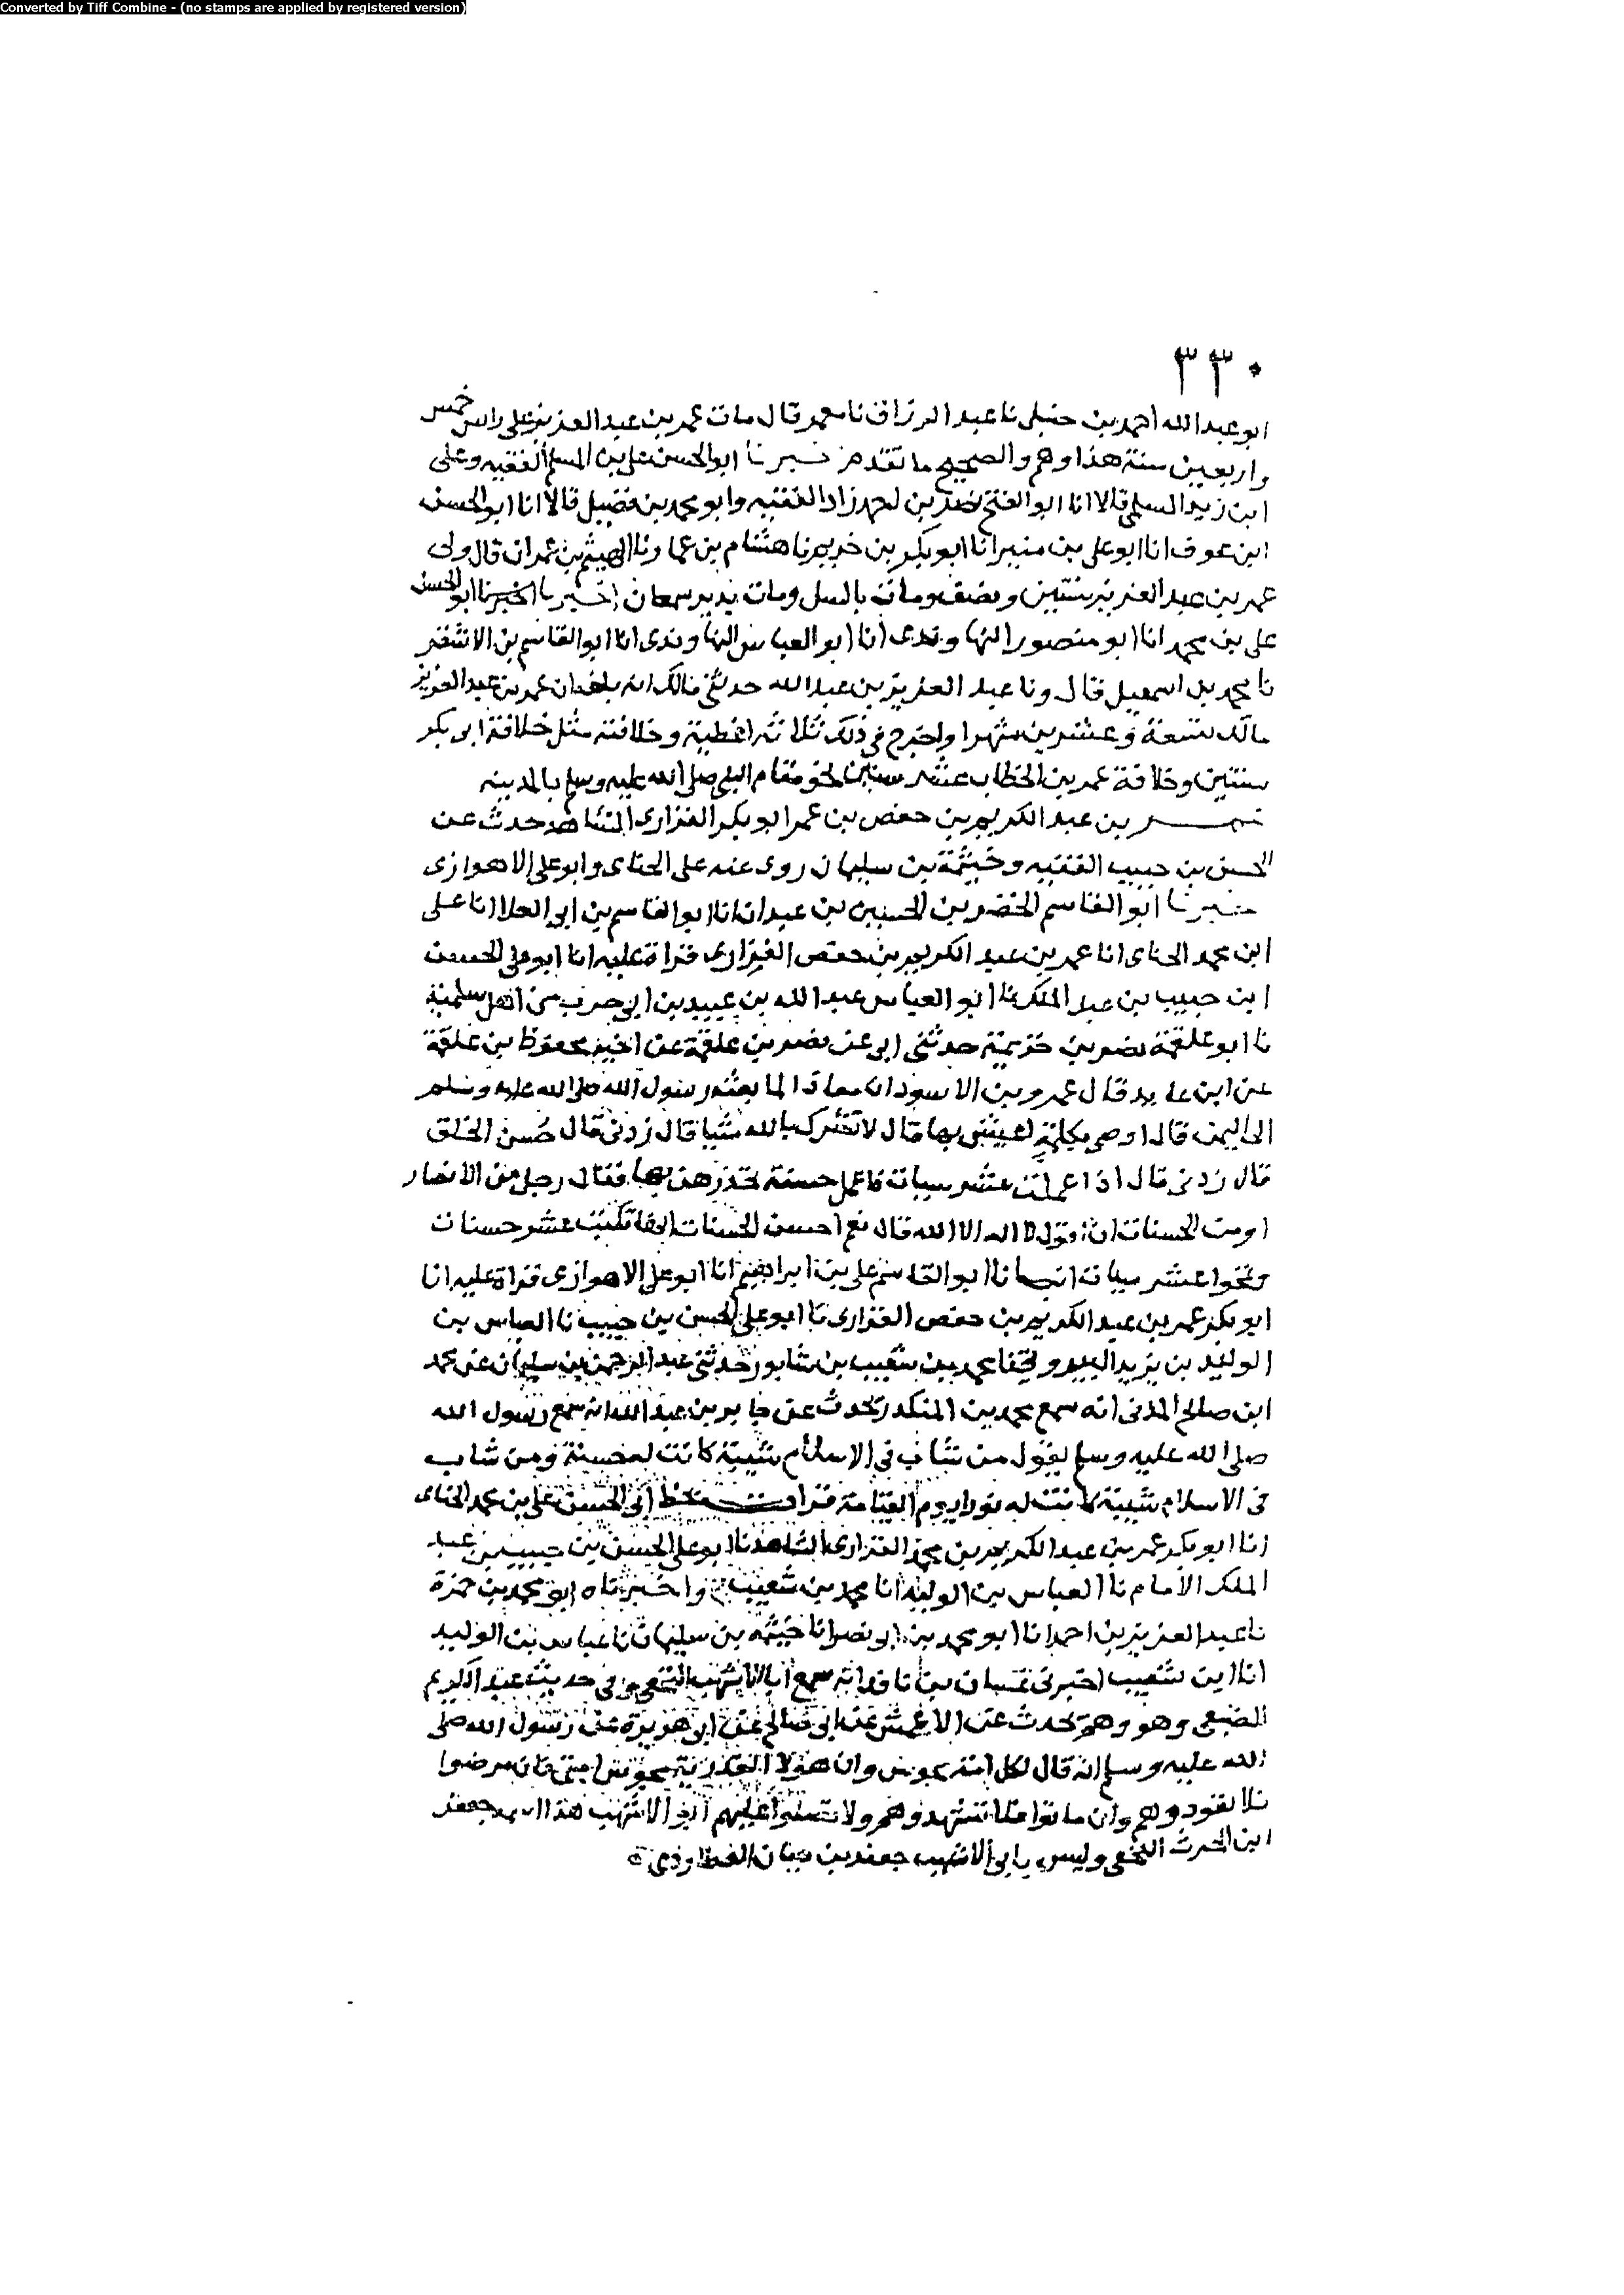 Converted by Tiff Combine - (no stamps are applied by registered version)
٣٣٠
ابو عبد الله احمد بن حنبل نا عبد الرزاق نا معمر قال مات عمر بن عبد العزيز على راس خمس
واربعين سنة هذا وهم والصحيح ما تقدم خبرنا ابو الحسن علي بن المسلم الفقيه وعلى
ابن زيد السلمي قالا انا ابو الفتح نصر بن ابراهيم زاد الفقيه وابو محمد بن فضيل قالا انا ابو الحسن
ابن عوف انا ابو على بن منير انا ابو بكر بن خريم نا هشام بن عمار نا الهيثم بن عمران قال ولى
عمر بن عبد العزيز سنتين ونصف ومات بالسل ومات بدير سمعان اخبرنا ابو الحسن
على بن محمد انا ابو منصور النهاوندى انا ابو العباس النهاوندى انا ابو القاسم بن الاشقر
نا محمد بن اسمعيل قال ونا عبد العزيز بن عبد الله حدثني مالك انه بلغه ان عمر بن عبد العزيز
مالك تسعة وعشرين شهرا واخرج في ذلك ثلاثة اعطية وخلافته مثل خلافة ابى بكر
سنتين وخلافة عمر بن الخطاب عشر سنين نحو مقام النبي صلى الله عليه وسلم بالمدينه
عمر بن عبد الكريم بن حفص بن عمر ابو بكر الفزارى الشاهد حدث عن
الحسن بن حبيب الفقيه وخيثمة بن سليمان روى عنه على الحناى وابو على الاهوازى
خبرنا ابو القاسم الخضر بن الحسين بن عبدان انا ابو القاسم بن ابي العلا انا على
ابن محمد الحناى انا عمر بن عبد الكريم بن حفص الفزارى قراة عليه انا ابو على الحسن
ابن حبيب بن عبد الملك نا ابو العباس عبد الله بن عبيد بن ابي حرب من اهل سلمية
نا ابو علقمة نصر بن خزيمة حدثني ابي عن نصر بن علقمة عن اخيه محفوظ بن علقمة
عن ابن عايد قال عمرو بن الاسود ان معاذا لما بعثه رسول الله صلى الله عليه وسلم
الى اليمن قال اوصني بكلمة اعيش بها قال لا تشرك بالله شيا قال زدنى قال حسن الخلق
قال زدنى قال اذا عملت عشر سيات فاعمل حسنة تحدرهن بها فقال رجل من الانصار
اومن الحسنات ان اقول لا اله الا الله قال نعم احسن الحسنات انها تكتب عشر حسنات
وتمحوا عشر سيات انبانا ابو القاسم على بن ابراهيم انا ابو على الاهوازى قراة عليه انا
ابو بكر عمر بن عبد الكريم بن حفص الفزارى نا ابو على الحسن بن حبيب نا العباس بن
الوليد بن يزيد البيروتى نا محمد بن شعيب بن شابور حدثني عبد الرحمن بن سليمان عن محمد
ابن صالح المدنى انه سمع محمد بن المنكدر يحدث عن جابر بن عبد الله انه سمع رسول الله
صلى الله عليه وسلم يقول من شاب في الاسلام شيبة كانت له حسنة ومن شاب
فى الاسلام شيبة كانت له نورا يوم القيامة قرات بخط ابي الحسن على بن محمد الحناى
انا ابو بكر عمر بن عبد الكريم بن الفزارى الشاهد نا ابو على الحسن بن حبيب بن عبد
الملك الامام نا العباس بن الوليد انا محمد بن شعيب واخبرناه ابو محمد بن حمزة
نا عبد العزيز بن احمد انا ابو محمد بن ابى نصر انا خيثمة بن سليمان نا عباس بن الوليد
انا ابن شعيب اخبرنى غسان بن ناقد انه سمع ابا الاشهب النخعى وفى حديث عبد الكريم
الضبعى وهو وهم يحدث عن الاعمش عن ابى صالح عن ابى هريرة عن رسول الله صلى
الله عليه وسلم انه قال لكل امة مجوس وان هولا القدرية مجوس امتى فان مرضوا
فلا تعودوهم وان ماتوا فلا تشهدوهم ولا تصلوا عليهم ابو الاشهب هذا جعفر
ابن الحرث النخعى وليس بابى الاشهب جعفر بن حيان العطاردى